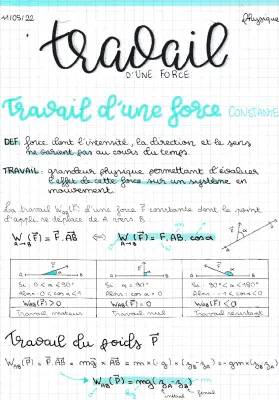 11/03/22
Physique
travail
D'UNE FORCE
Travail d'une force CONSTANTE
DEF: force dont l'intensité, la direction et le sens
ne varient pas au cours du temps.
TRAVAIL: grandeur physique permettant d'évaluer
l'effet de cette force sur un système en
mouvement.
Le travail W_AB(F→) d'une force F→ constante dont le point
d'appli se déplace de A vers B
W_A→B(F→) = F→.AB→ ⇔ W_A→B(F→) = F.AB.cosα
Si: 0 < α < 90° Si: α = 90° Si: 90° < α < 180°
Alors: 0 < cosα < 1 Alors: cosα = 0 Alors: -1 < cosα < 0
W_AB(F→) > 0 W_AB(F→) = 0 W_AB(F→) < 0
Travail moteur Travail nul Travail résistant
Travail du poids P→
W_AB(P→) = P→.AB→ = mg→ × AB→ = m×(-g)×(z_B-z_A) = -gm×(z_B-z_A)
W_AB(P→) = mg(z_A-z_B)
initial final